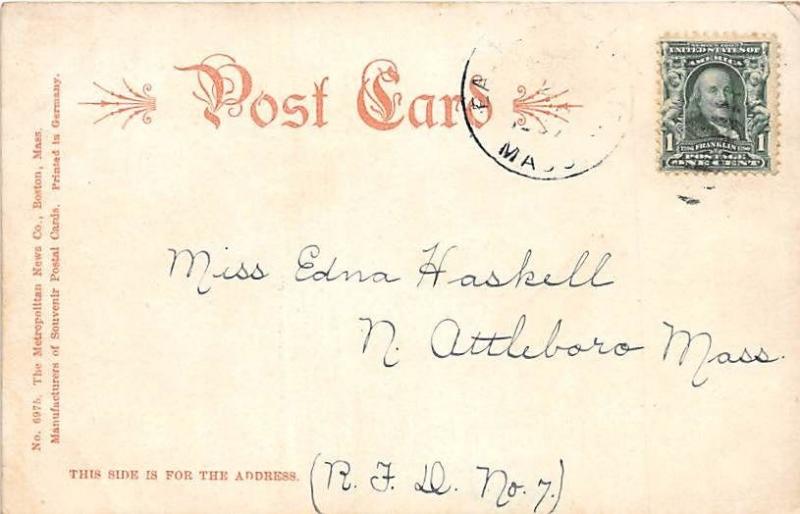 Post Card
MASS
SERIES 1902
UNITED STATES OF
AMERICA
1 FRANKLIN 1
POSTAGE
ONE CENT
Miss Edna Haskell
N. Attleboro Mass.
(R. F. D. No. 7.)
THIS SIDE IS FOR THE ADDRESS.
No. 697b. The Metropolitan News Co., Boston, Mass.
Manufacturers of Souvenir Postal Cards. Printed in Germany.